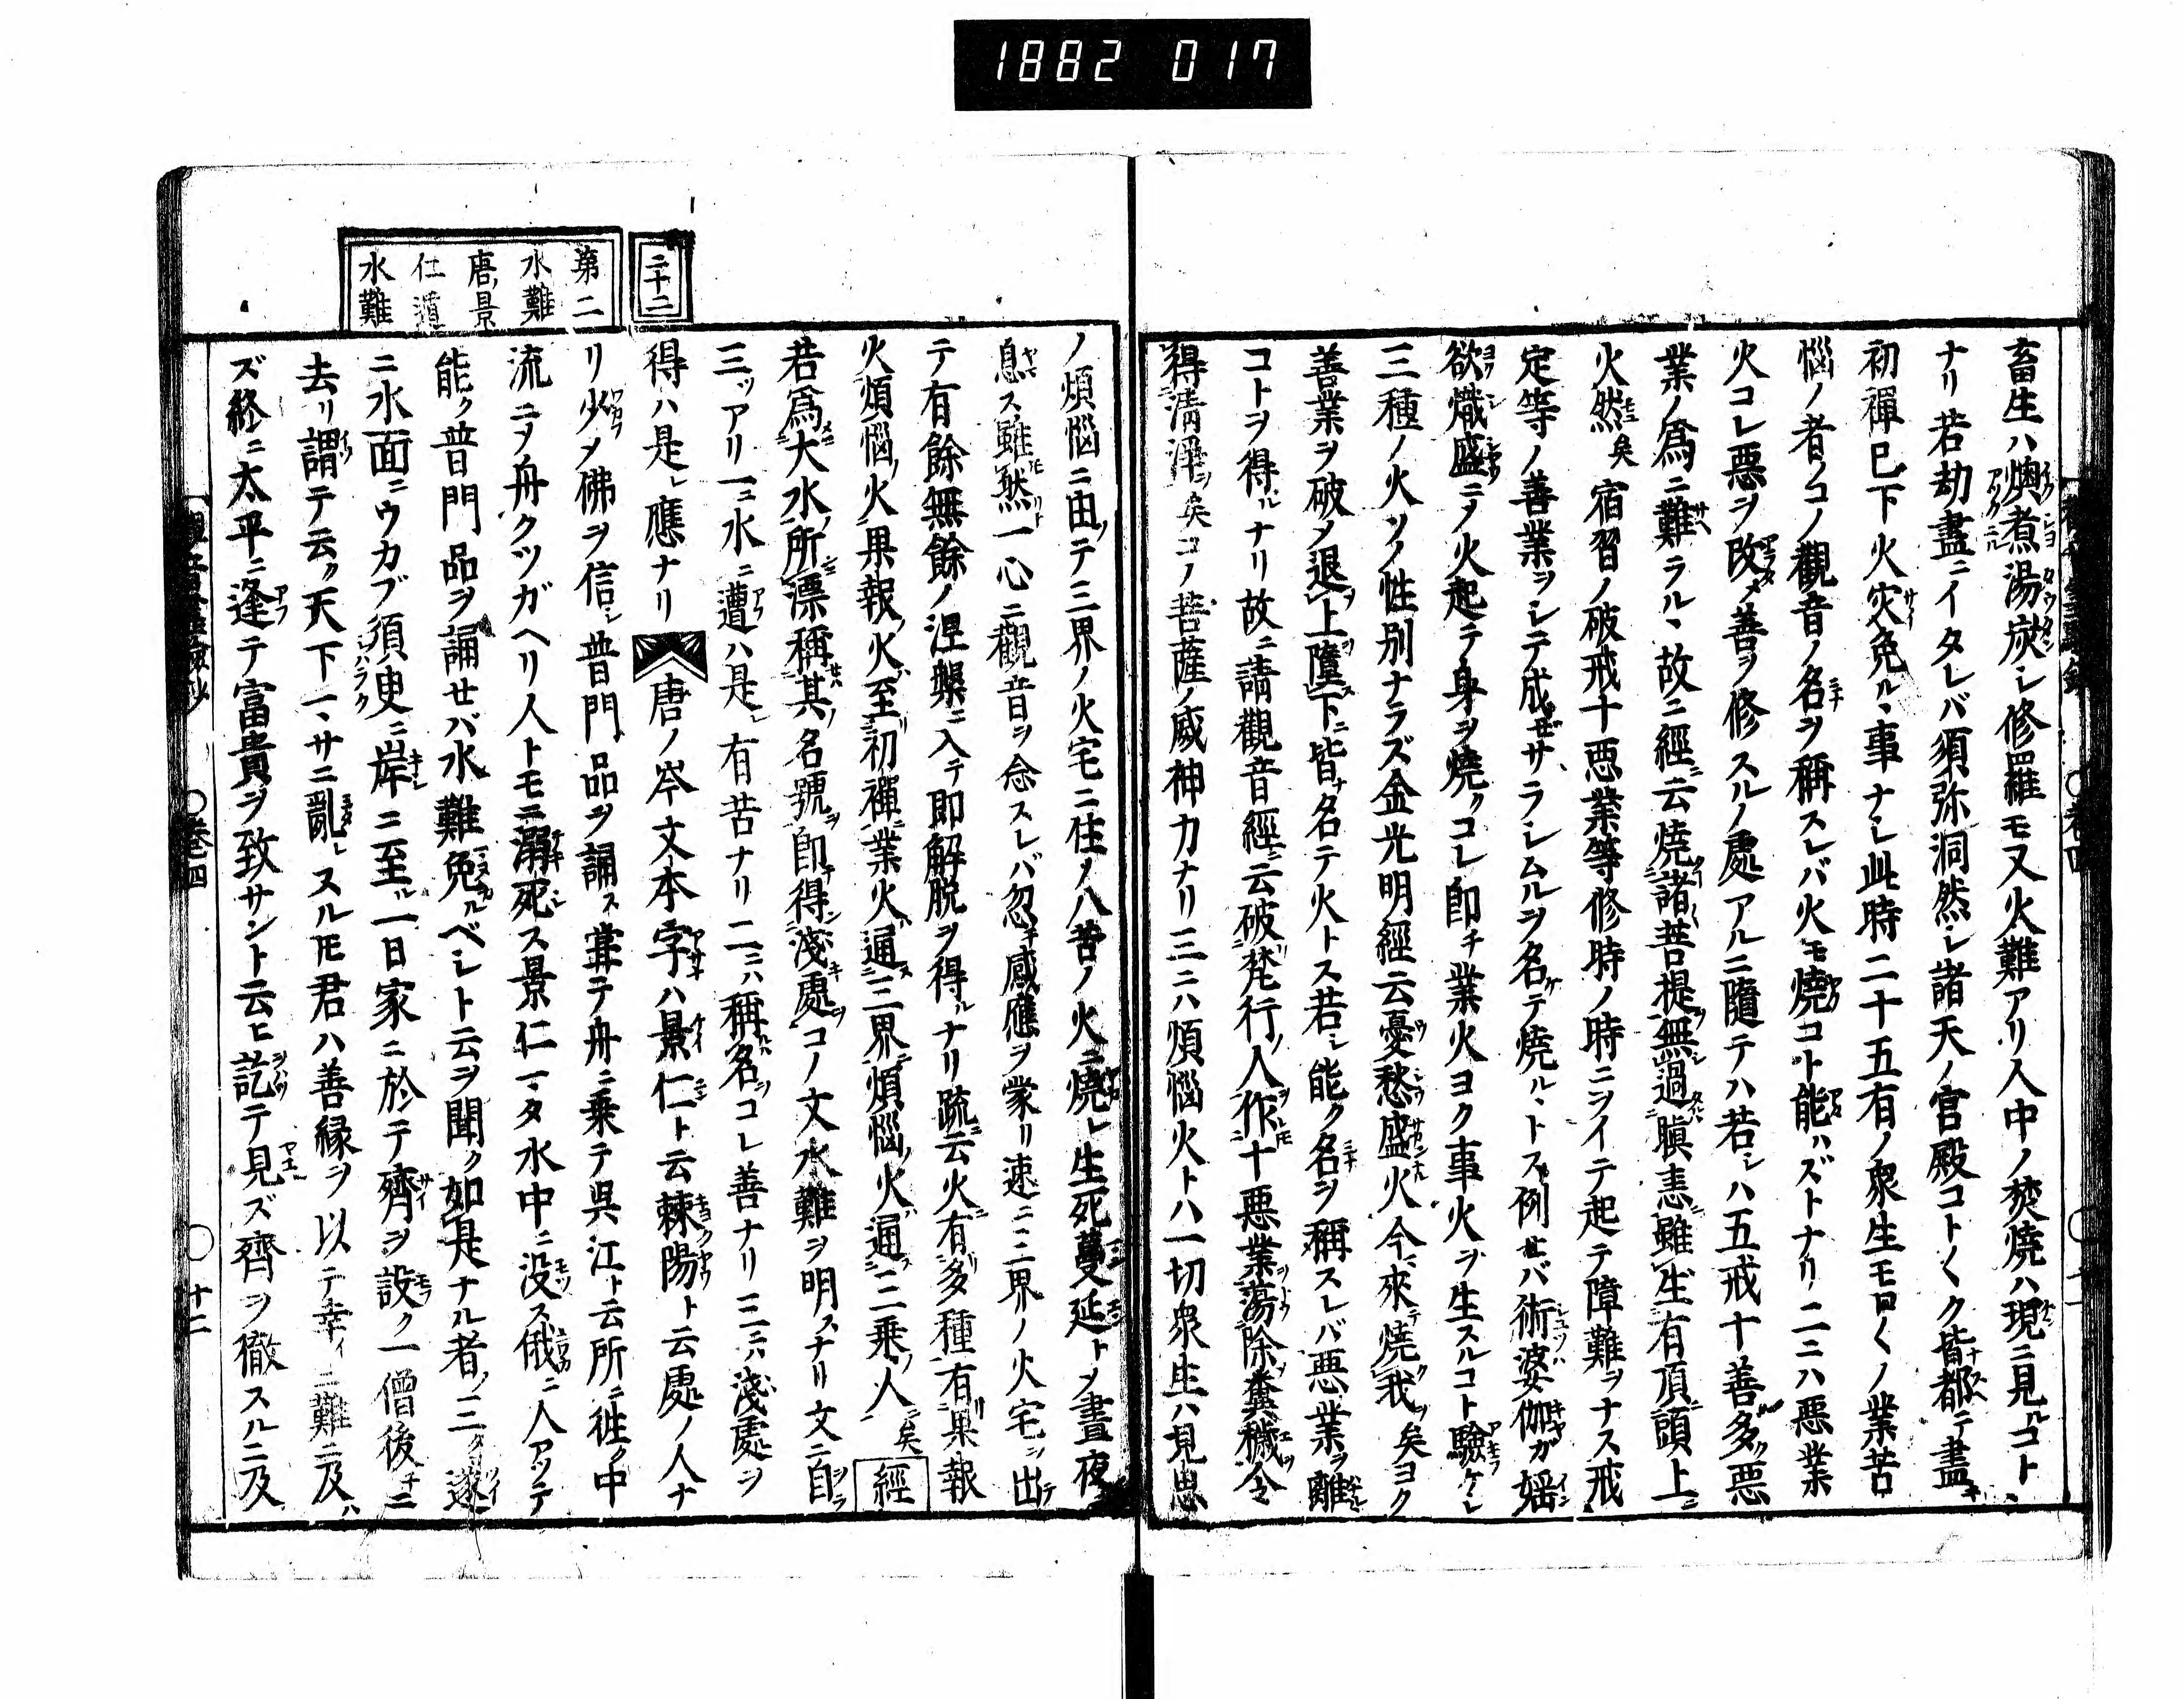 1882 017
畜生ハ燠煮湯炭シ修羅モ又火難アリ人中ノ焚焼ハ現ニ見ルコト
ナリ若劫盡ニイタレバ須弥洞然シ諸天ノ宮殿コト〱ク皆都テ盡
初禪已下火灾免ルヽ事ナシ此時二十五有ノ衆生モロ〱ノ業苦
惱ノ者コノ觀音ノ名ヲ稱スレバ火モ燒コト能ハズトナリ二ニハ悪業
火コレ悪ヲ改メ善ヲ修スルノ處アルニ隨テハ若シハ五戒十善多ク悪
業ノ爲ニ難ラルヽ故ニ經ニ云燒諸菩提無過瞋恚雖生有頂頭上ニ
火然矣宿習ノ破戒十悪業等修時ノ時ニヲイテ起テ障難ヲナス戒
定等ノ善業ヲシテ成ゼサラシムルヲ名ケテ燒ルヽトス例セバ術婆伽ガ婬
欲熾盛ニメ火起テ身ヲ燒クコレ卽チ業火ヨク事火ヲ生スルコト驗ケシ
三種ノ火ソノ性別ナラズ金光明經云憂愁盛火今來テ燒我矣ヨク
善業ヲ破メ退上墮下ニ皆ナ名テ火トス若シ能ク名ヲ稱スレバ悪業ヲ離
コトヲ得ルナリ故ニ請觀音經ニ云破梵行人作十悪業蕩除糞穢令
得清淨矣コノ菩薩ノ威神力ナリ三ニハ煩惱火トハ一切衆生ハ見思
二十二
第二
水難
唐景
仁遭
水難
ノ煩惱ニ由テ三界ノ火宅ニ住メ八苦ノ火ニ燒レ生死蔓延トメ晝夜
息ス雖然一心ニ觀音ヲ念スレバ忽チ感應ヲ蒙リ速ニ三界ノ火宅ヲ出テ
テ有餘無餘ノ涅槃ニ入テ即解脱ヲ得ルナリ疏云火有多種有果報
火煩惱火果報火至初禪業火通三界煩惱火通三乘人矣經
若爲大水所漂稱其名號卽得淺處コノ文水難ヲ明スナリ文ニ自
三ツアリ一ニ水ニ遭ハ是レ有苦ナリ二ニハ稱名コレ善ナリ三ニハ淺處ヲ
得ハ是レ應ナリ唐ノ岑文本字ハ景仁ト云棘陽ト云處ノ人ナ
リ少メ佛ヲ信シ普門品ヲ誦ス甞テ舟ニ乘テ呉江ト云所ニ徃ク中
流ニメ舟クツガヘリ人トモニ溺死ス景仁一タ水中ニ没ス俄ニ人アツテ
能ク普門品ヲ誦セバ水難免ルベシト云ヲ聞ク如是ナル者ノ三タ遂
ニ水面ニウカブ須臾ニ岸ニ至ル一日家ニ於テ齊ヲ設ク一僧後チニ
去リ謂テ云ク天下一マサニ亂レスルモ君ハ善縁ヲ以テ幸イニ難ニ及ハ
ズ終ニ太平ニ逢テ富貴ヲ致サント云ヒ訖テ見ズ齊ヲ徹スルニ及
卷四
十二